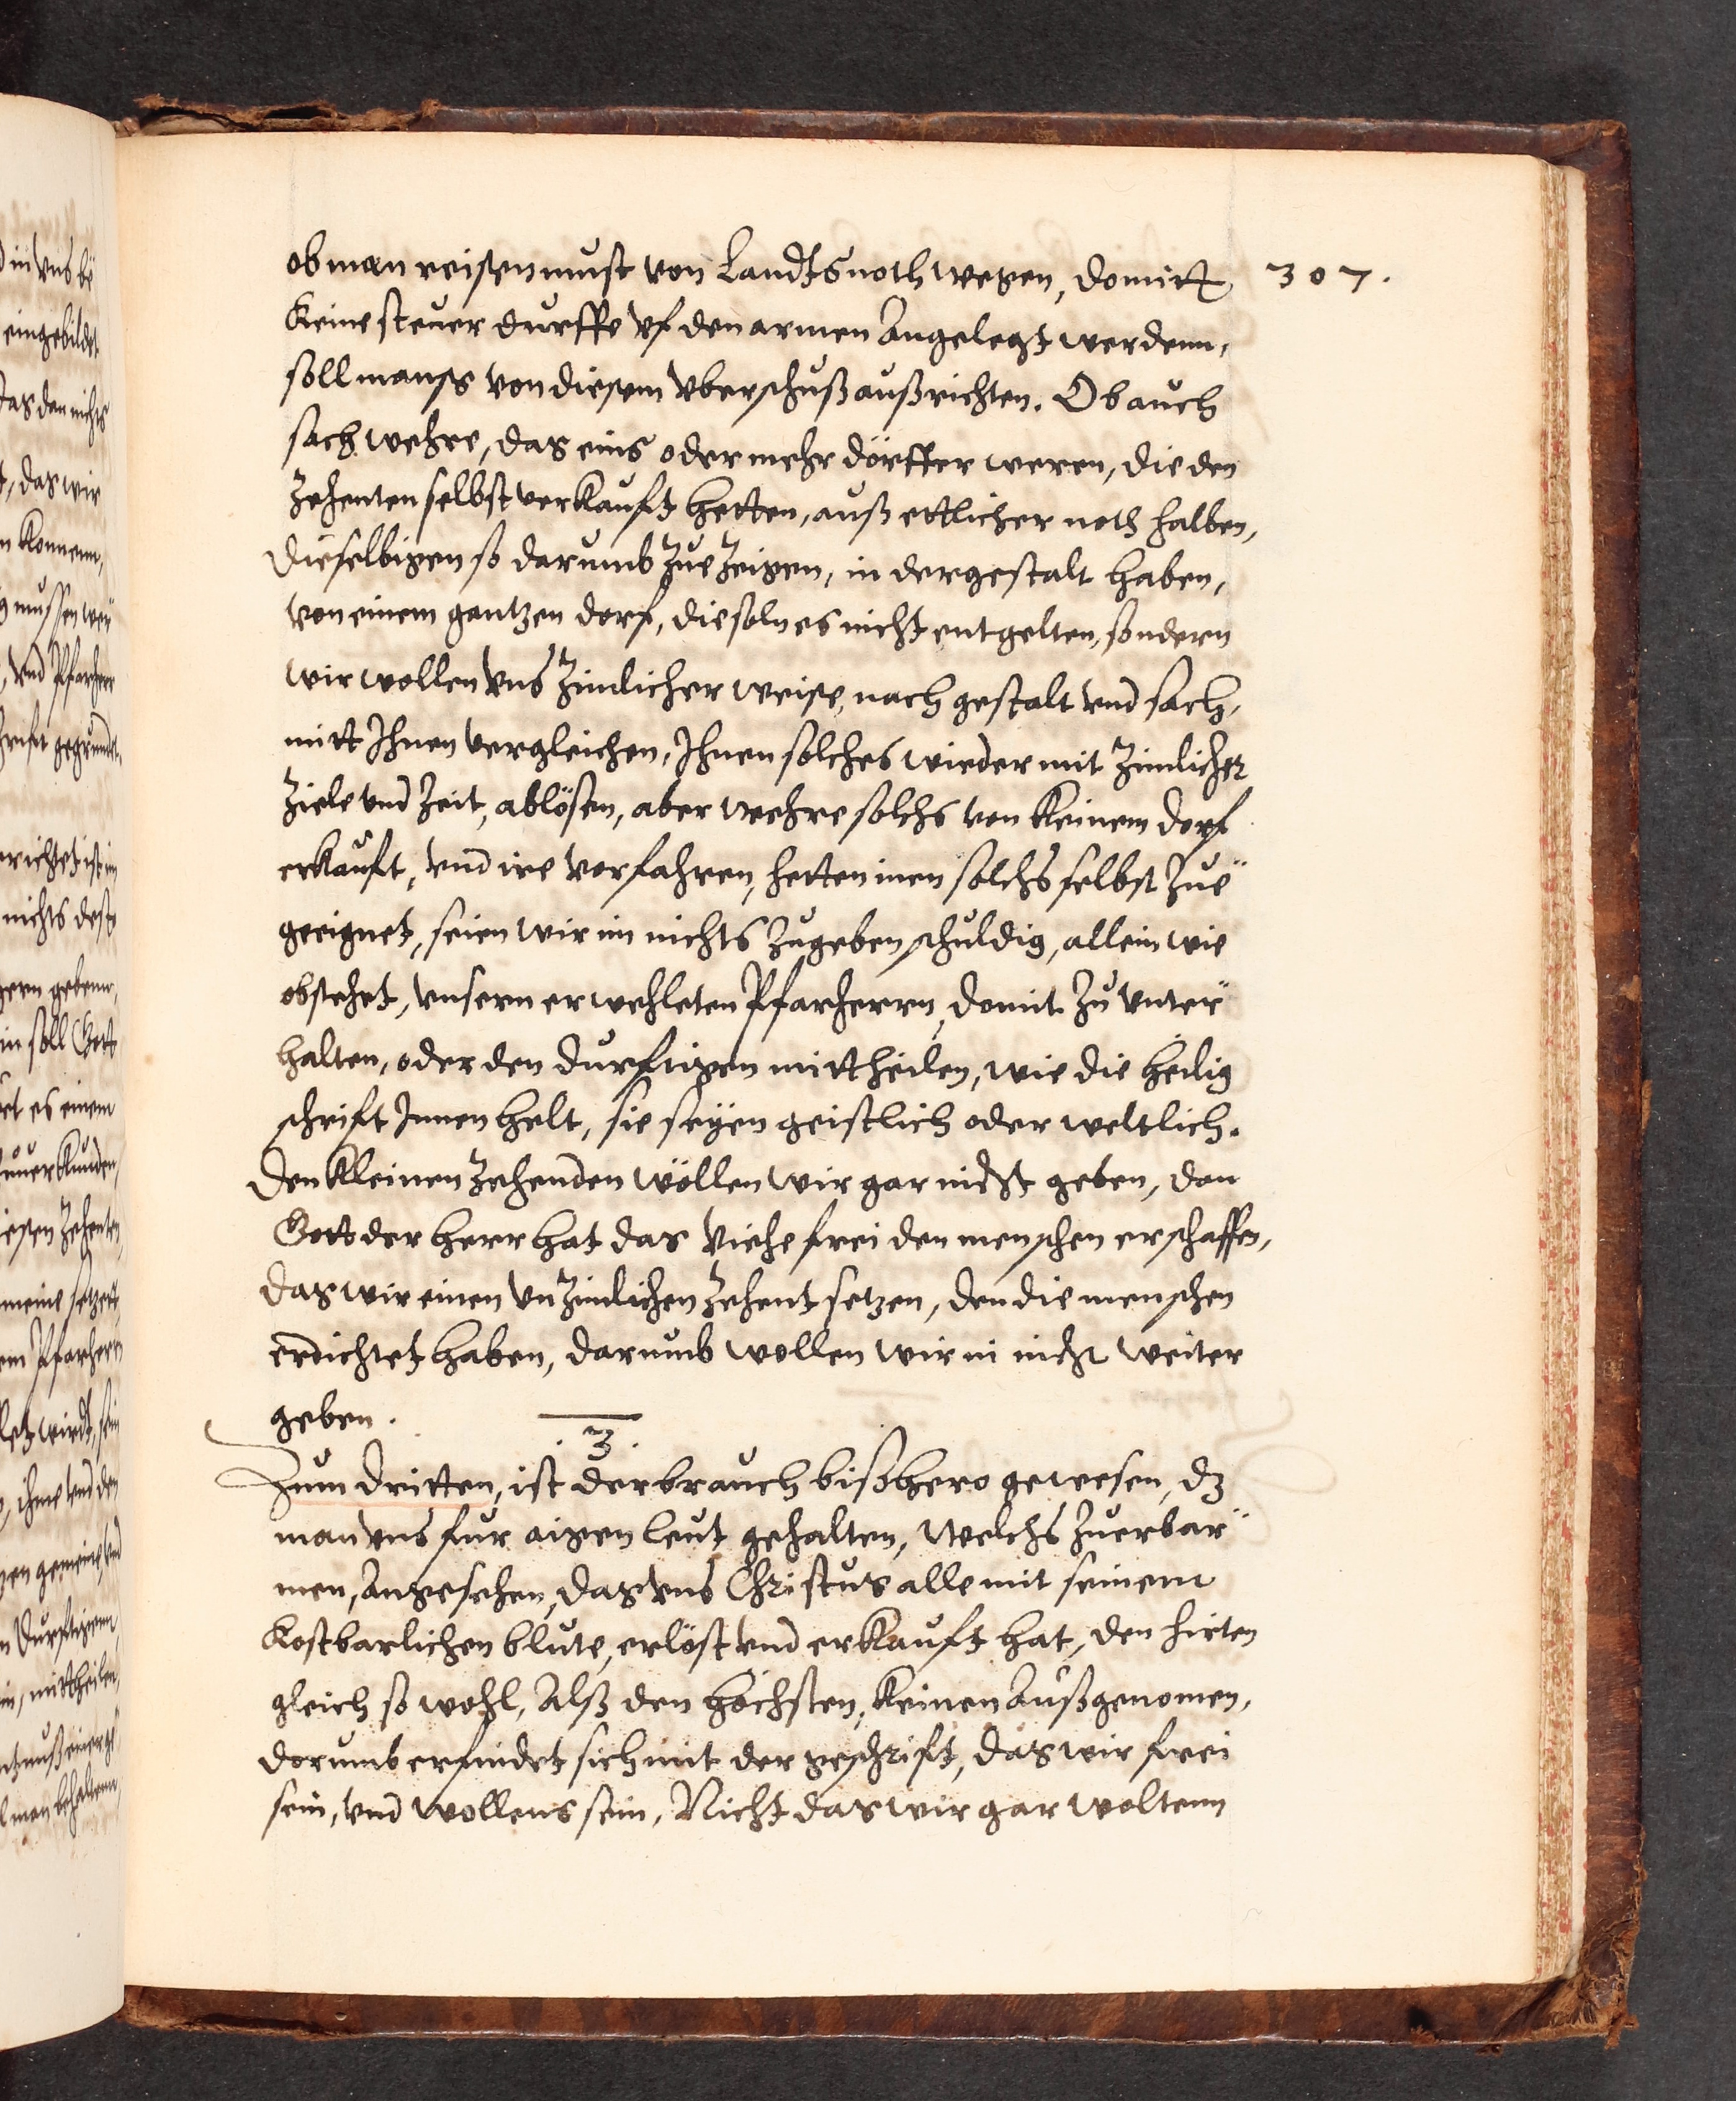 307.
ob man reisen must von Landtsnoth wegen, domitt
keine steuer durffe vf den armen Angelegt werdenn,
soll manss von diesem vberschuß außrichten. Ob auch
sach wehre, das eins oder mehr dörffer weren, die den
Zehenten selbst verkauft hetten, auß ettlicher noth halben,
dieselbigen so darumb zue zeigen, in der gestalt haben,
von einem gantzen dorf, die soln es nicht entgelten, sondern
wir wollen vns zimlicher weise, nach gestalt vnd sach,
mitt Ihnen vergleichen, Ihnen solches wieder mit zimlicher
ziele vnd zeit, ablösen, aber wehre solchs von keinem dorf
erkauft, vnd ire vorfahren, hetten inen solchs selbst zue
geeignet, seien wir in nichts zugeben schuldig, allein wie
obstehet, vnsern erwehleten Pfarherrn, domit zu vnter
halten, oder den durftigen mittheilen, wie die heilig
schrift Innen helt, sie seyen geistlich oder weltlich.
Den kleinen Zehenden wöllen wir gar nicht geben, dan
Gott der herr hat das Viehe frei den menschen erschaffen,
das wir einen vnzimlichen Zehent setzen, den die menschen
erdichtet haben, darumb wollen wir in nicht weiter
geben.
.3.
Zum dritten, ist der brauch bißhero gewesen, dz
man vns fur aigen leut gehalten, Welchs zuerbar
men, Angesehen, das vns Christus alle mit seinem
kostbarlichen blute, erlöst vnd erkauft hat, den hirten
gleich so wohl, Alß den höchsten, keinen Außgenomen,
dorumb erfindet sich mit der geschrift, das wir frei
sein, vnd wollens sein, Nicht das wir gar woltenn